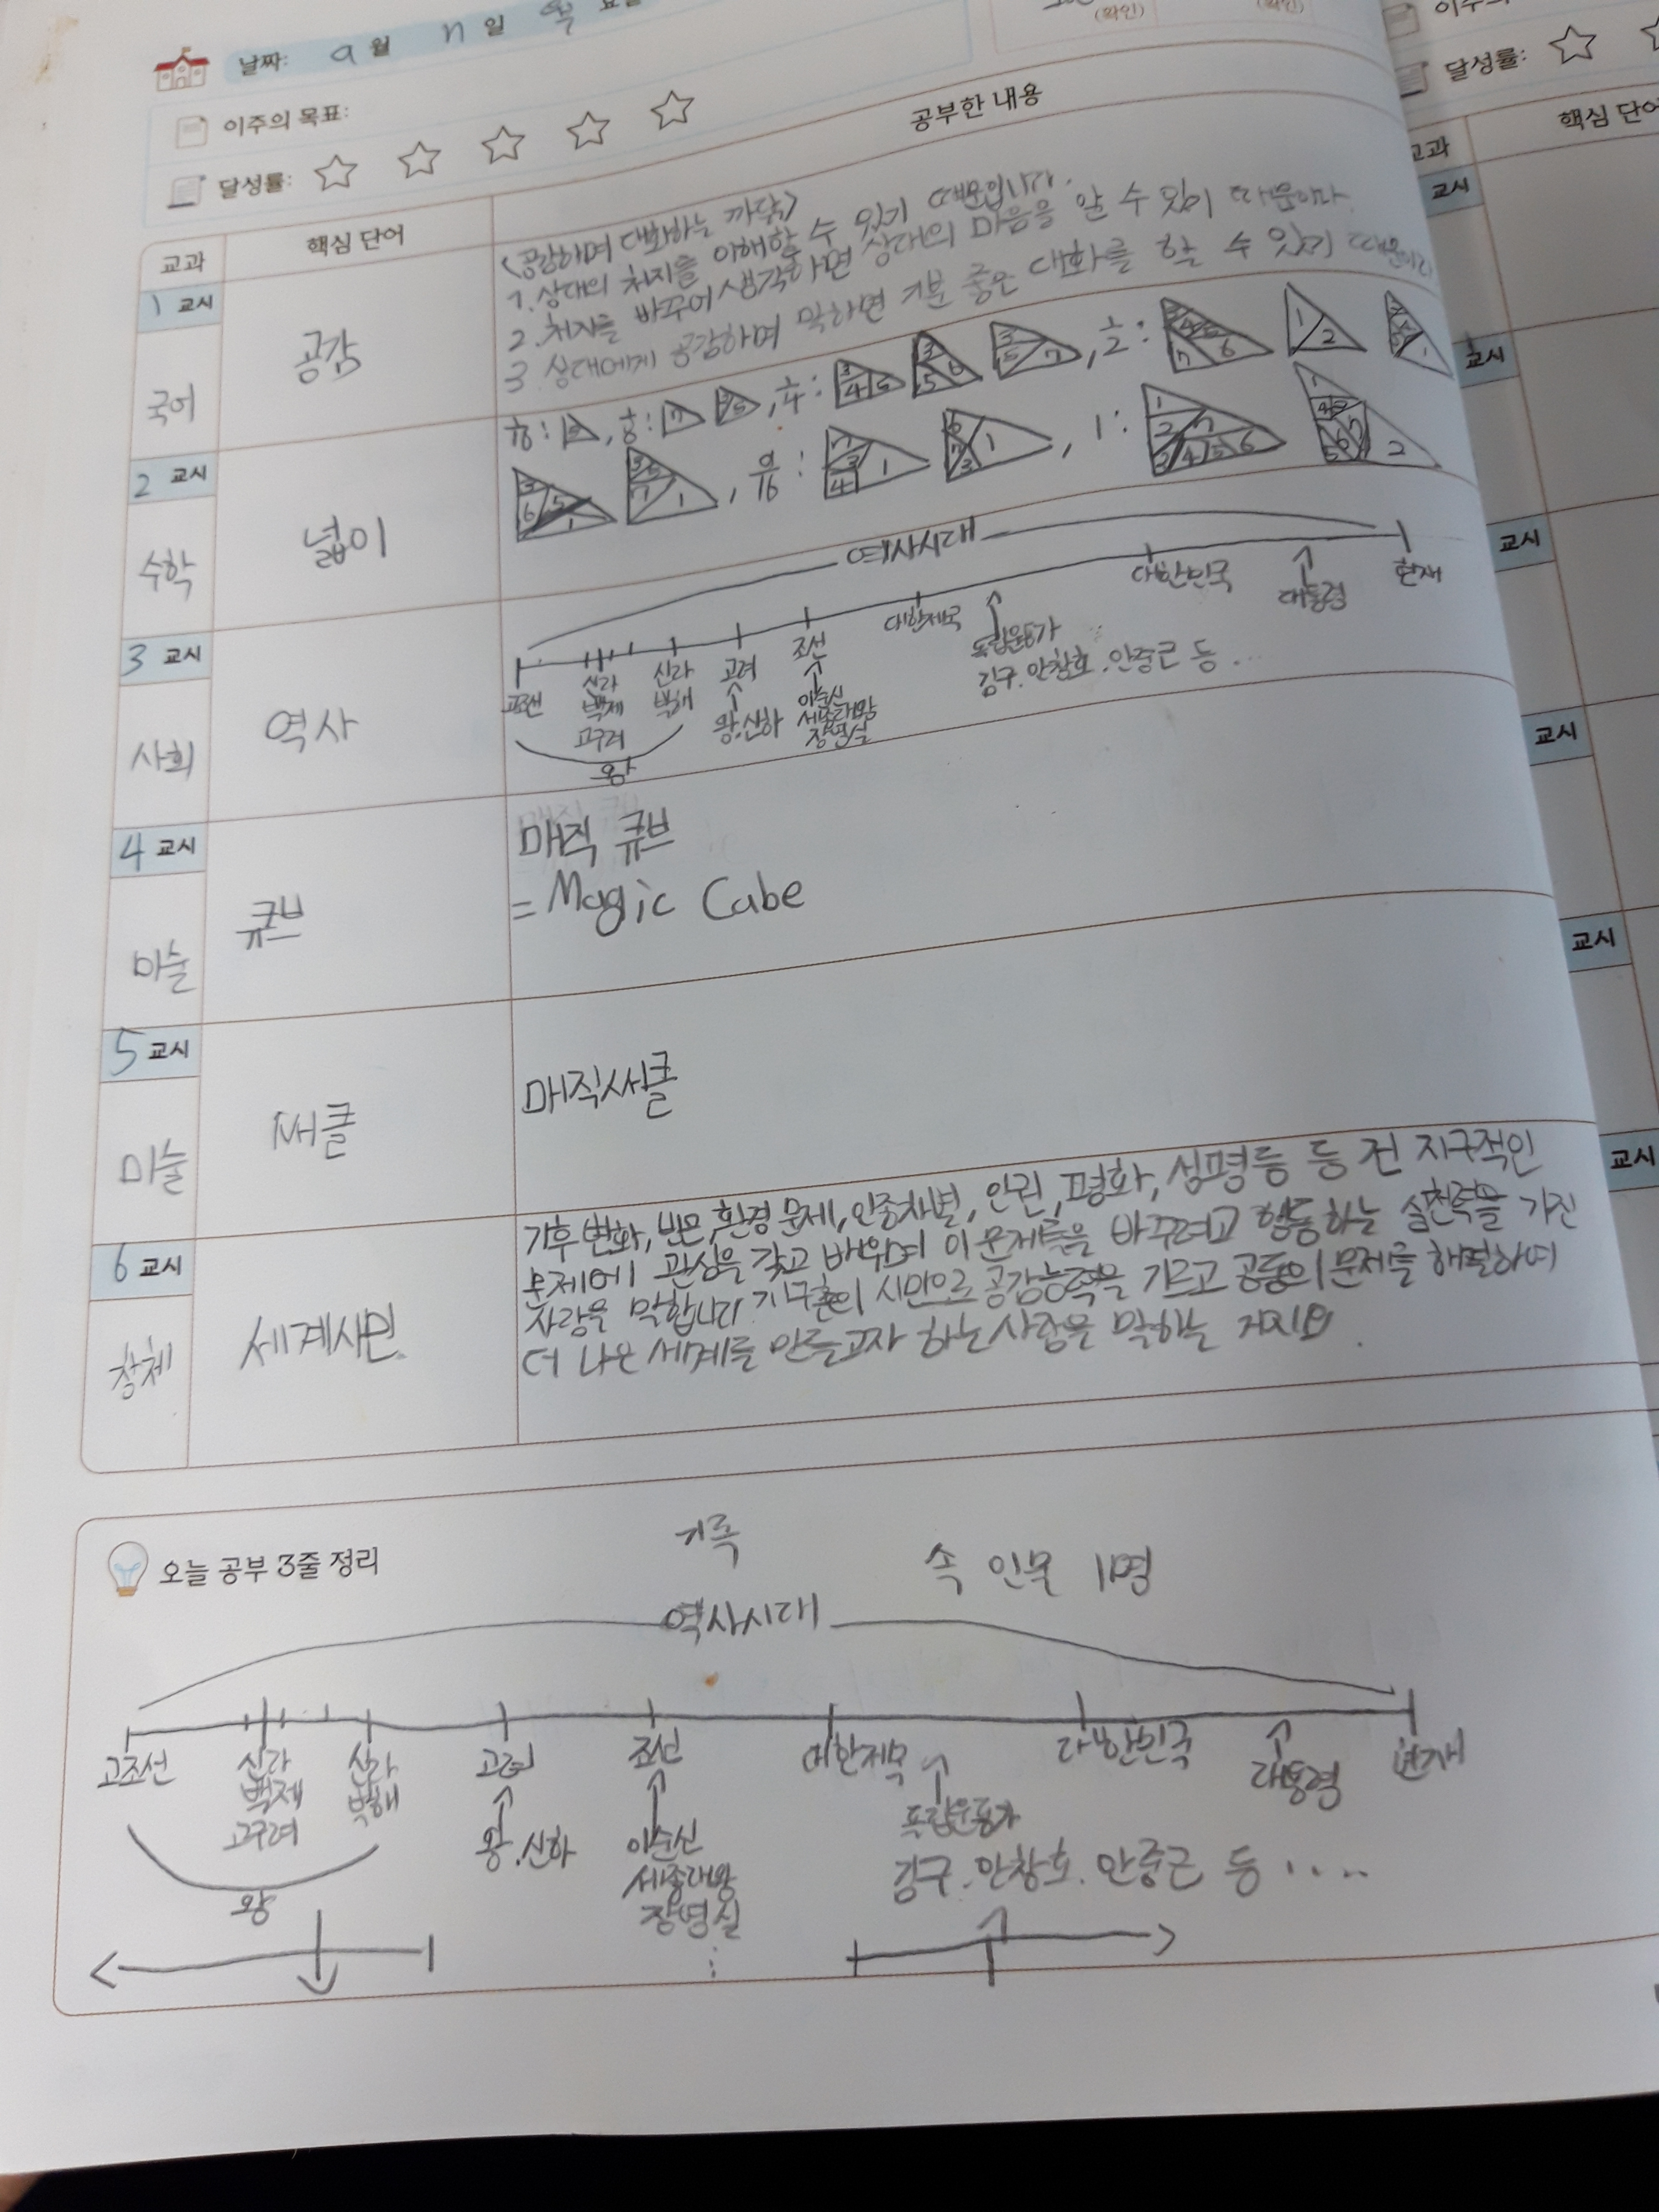 날짜: 9월 일
(확인) (확인)
이주의 목표:
달성률:
달성률:
교과 핵심 단어 공부한 내용
교과 핵심 단어
1 교시
국어
공감
<공감하며 대화하는 까닭>
1. 상대의 처지를 이해할 수 있기 때문입니다.
2. 처지를 바꾸어 생각하면 상대의 마음을 알 수 있이 때문이다.
3. 상대에게 공감하며 말하면 기분 좋은 대화를 할 수 있기 때문이다
2 교시
수학
넓이
1/16: , 1/8: 7 , 1/4: 3 4 5 3 5 6 3 5 7 , 1/2: 7 6 1 2 1
3 6 5 1 3 5 7 1 , 9/16: 7 3 4 1 6 7 3 1 , 1: 1 2 7 3 4 5 6 1 2
3 교시
사회
역사
역사시대
고조선
신라
백제
고구려
신라
발해
왕
고려
왕.신하
조선
이순신
세종대왕
장영실
대한제국
독립운동가
김구.안창호.안중근 등...
대한민국
대통령
현재
4 교시
미술
큐브
매직 큐브
= Magic Cube
5 교시
미술
써클
매직써클
6 교시
창체
세계시민
기후 변화, 빈곤, 환경 문제, 인종차별, 인권, 평화, 성평등 등 전 지구적인
문제에 관심을 갖고 배우며 이 문제들을 바꾸려고 행동하는 실천력을 가진
사람을 말합니다 지구촌의 시민으로 공감능력을 기르고 공동의 문제를 해결하여
더 나은 세계를 만들고자 하는 사람을 말하는 거지요.
교시
교시
교시
교시
교시
교시
오늘 공부 3줄 정리
기록
속 인물 1명
역사시대
고조선
신라
백제
고구려
신라
발해
왕
고려
왕.신하
조선
이순신
세종대왕
장영실
대한제국
독립운동가
김구.안창호.안중근 등....
대한민국
대통령
현재